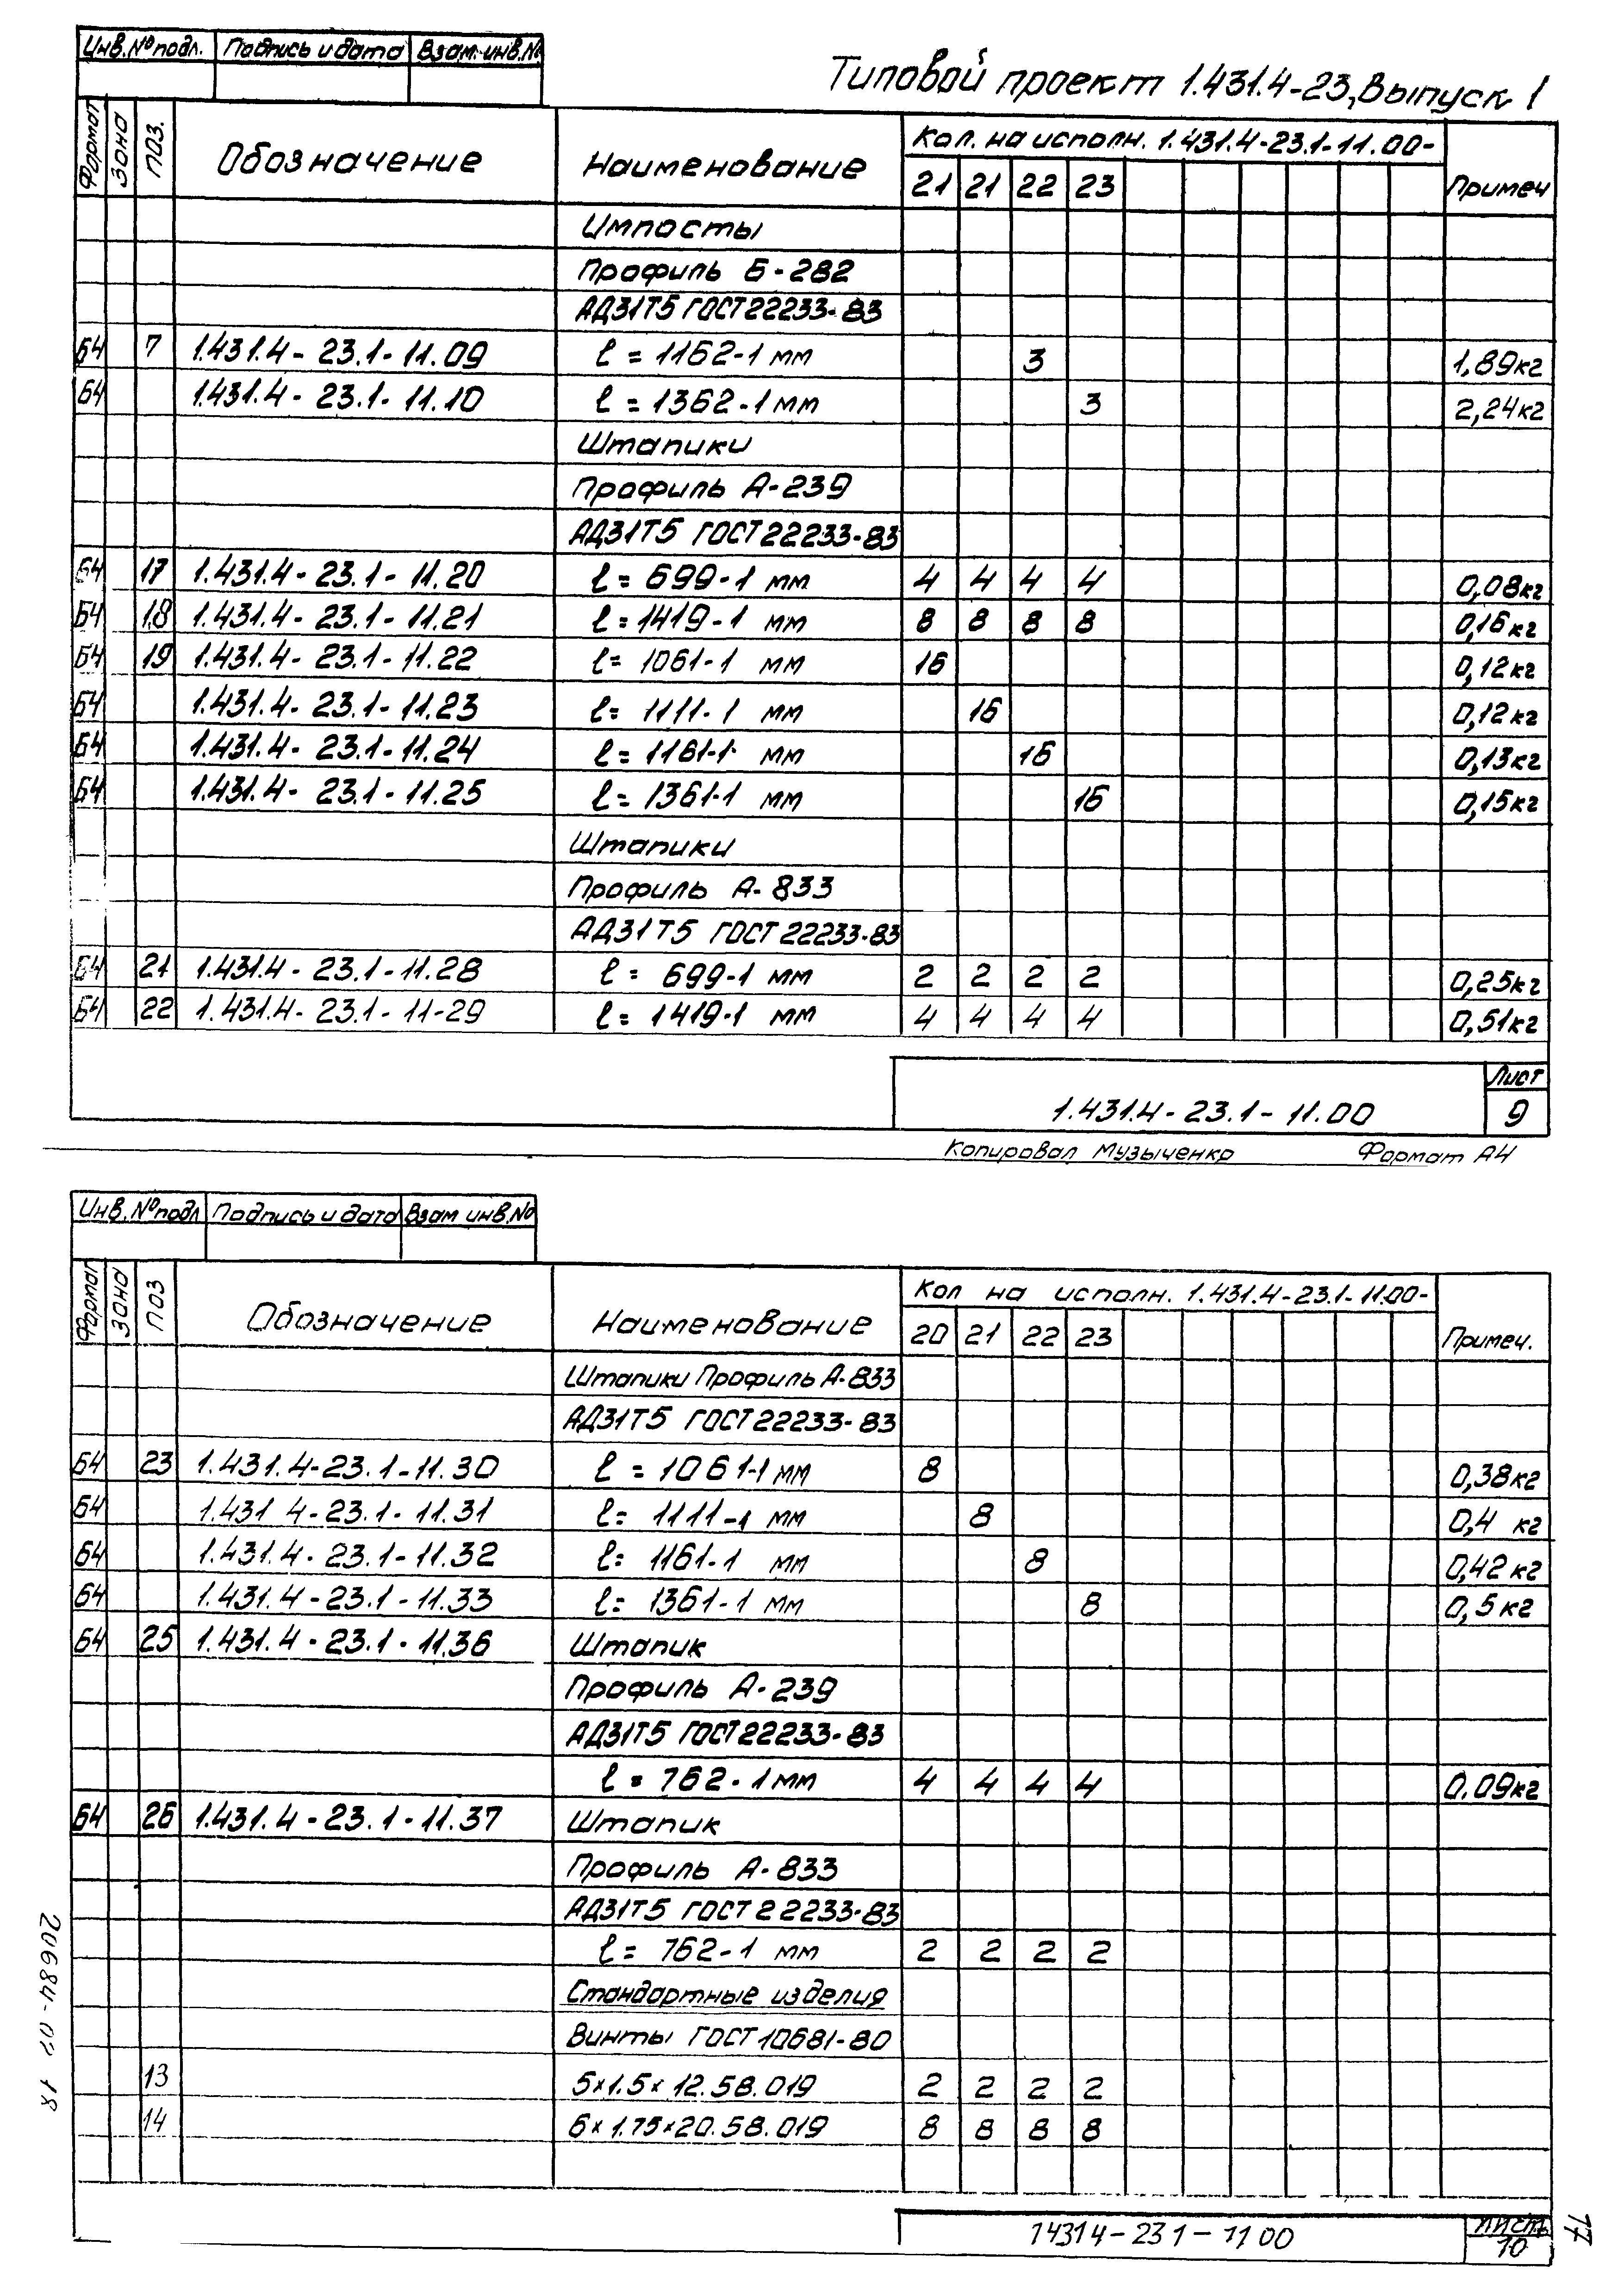 Инв.№ подл. Подпись и дата Взам.инв.№
Типовой проект 1.431.4-23, Выпуск 1
Формат Зона Поз. Обозначение Наименование Кол. на исполн. 1.431.4-23.1-11.00- Примеч
21 21 22 23
Импосты
Профиль Б-282
АД31Т5 ГОСТ22233-83
Б4 7 1.431.4-23.1-11.09 ℓ=1162-1 мм 3 1,89кг
Б4 1.431.4-23.1-11.10 ℓ=1362-1мм 3 2,24кг
Штапики
Профиль А-239
АД31Т5 ГОСТ22233-83
Б4 17 1.431.4-23.1-11.20 ℓ=699-1 мм 4 4 4 4 0,08кг
Б4 18 1.431.4-23.1-11.21 ℓ=1419-1 мм 8 8 8 8 0,16кг
Б4 19 1.431.4-23.1-11.22 ℓ=1061-1 мм 16 0,12кг
Б4 1.431.4-23.1-11.23 ℓ=1111-1 мм 16 0,12кг
Б4 1.431.4-23.1-11.24 ℓ=1161-1 мм 16 0,13кг
Б4 1.431.4-23.1-11.25 ℓ=1361-1 мм 16 0,15кг
Штапики
Профиль А-833
АД31Т5 ГОСТ22233-83
Б4 21 1.431.4-23.1-11.28 ℓ=699-1 мм 2 2 2 2 0,25кг
Б4 22 1.431.4-23.1-11-29 ℓ=1419-1 мм 4 4 4 4 0,51кг
Лист
1.431.4-23.1-11.00 9
Копировал Музыченко Формат А4
Инв.№ подл Подпись и дата Взам инв.№
Формат Зона Поз Обозначение Наименование Кол на исполн. 1.431.4-23.1-11.00- Примеч.
20 21 22 23
Штапики Профиль А-833
АД31Т5 ГОСТ22233-83
Б4 23 1.431.4-23.1-11.30 ℓ=1061-1 мм 8 0,38кг
Б4 1.431 4-23.1-11.31 ℓ=1111-1 мм 8 0,4 кг
Б4 1.431.4-23.1-11.32 ℓ=1161-1 мм 8 0,42кг
Б4 1.431.4-23.1-11.33 ℓ=1361-1 мм 8 0,5кг
Б4 25 1.431.4-23.1-11.36 Штапик
Профиль А-239
АД31Т5 ГОСТ22233-83
ℓ=762-1мм 4 4 4 4 0.09кг
Б4 26 1.431.4-23.1-11.37 Штапик
Профиль А-833
АД31Т5 ГОСТ22233-83
ℓ=762-1 мм 2 2 2 2
Стандартные изделия
Винты ГОСТ10681-80
13 5×1.5×12.58.019 2 2 2 2
14 6×1.75×20.58.019 8 8 8 8
20684-02 18
14314-231-1100 Лист
10
17